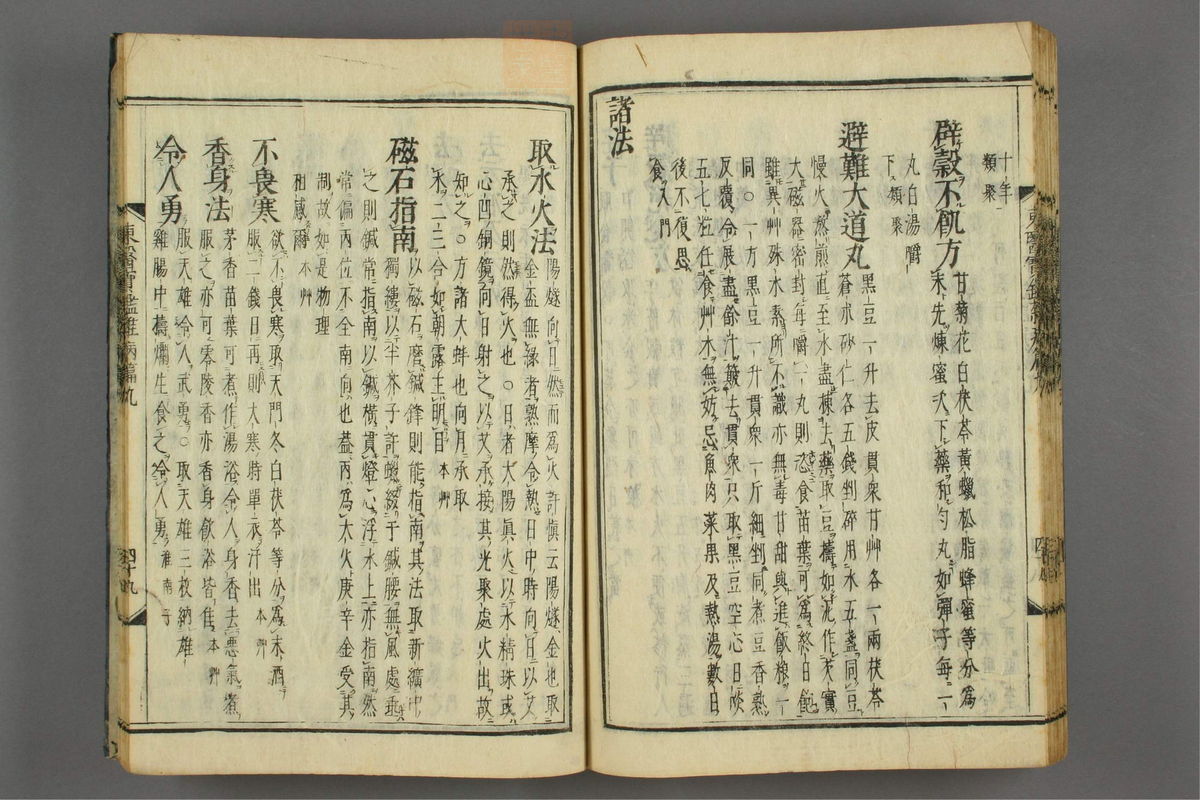 十年
類聚
辟穀不飢方 甘菊花白茯苓黃蠟松脂蜂蜜等分為
末先煉蜜次下藥和勻丸如彈子每一
丸白湯嚼
下類聚
避難大道丸 黑豆一升去皮貫衆甘艸各一兩茯苓
蒼朮砂仁各五錢剉碎用水五盞同豆
慢火熬煎直至水盡揀去藥取豆擣如泥作芡實
大磁器密封每嚼一丸則恣食苗葉可為終日飽
雖異艸殊木素所不識亦無毒甘甜與進飯粮一
同○一方黑豆一升貫衆一斤細剉同煮豆香熟
反覆令展盡餘汁簸去貫衆只取黑豆空心日啖
五七粒任食艸木無妨忌魚肉菜果及熱湯數日
後不復思
食入門
諸法
取水火法 陽燧向日然而爲火許愼云陽燧金也取
金盃無緣者熟摩令熱日中時向日以艾
承之則然得火也○日者太陽眞火以水精珠或
心凹銅鏡向日射之以艾承接其光聚處火出故
知之○方諸大蚌也向月承取
水二三合如朝露王明目本艸
磁石指南 以磁石磨鍼鋒則能指南其法取新纊中
獨縷以半芥子許蠟綴于鍼腰無風處垂
之則鍼常指南以鍼橫貫燈心浮水上亦指南然
常偏丙位不全南向也盖丙為大火庚辛金受其
制故如是物理
相感爾本艸
不畏寒 欲不畏寒取天門冬白茯苓等分爲末酒
服二錢日再則大寒時單衣汗出本艸
香身法 茅香苗葉可煮作湯浴令人身香去惡氣煮
服之亦可零陵香亦香身飮浴皆佳本艸
令人勇 服天雄令人武勇○取天雄三枚納雄
雞腸中擣爛生食之令人勇淮南子
東醫寶鑑雜病篇九
四十九